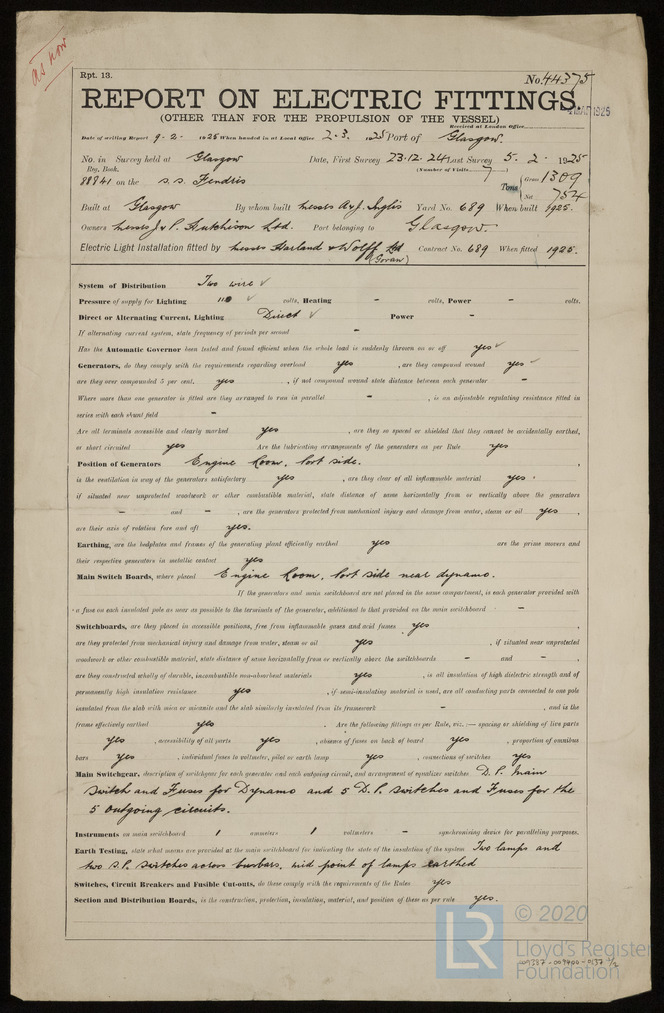 as now
Rpt. 13.
No. 44375
REPORT ON ELECTRIC FITTINGS.
(OTHER THAN FOR THE PROPULSION OF THE VESSEL)
MAR 1925
Received at London Office
Date of writing Report 9.2. 1925 When handed in at Local Office 2.3. 1925 Port of Glasgow.
No. in Survey held at Glasgow Date, First Survey 23.12.24 Last Survey 5.2.1925
Reg. Book. (Number of Visits 7)
88841 on the S.S. Fendris Tons { Gross 1309
Net 754
Built at Glasgow By whom built Messrs A & J. Inglis Yard No. 689 When built 1925.
Owners Messrs J & P. Hutchison Ltd. Port belonging to Glasgow.
Electric Light Installation fitted by Messrs Harland & Wolff Ltd (Govan) Contract No. 689 When fitted 1925.
System of Distribution Two wire ✓
Pressure of supply for Lighting 110 ✓ volts, Heating - volts, Power - volts.
Direct or Alternating Current, Lighting Direct ✓ Power -
If alternating current system, state frequency of periods per second -
Has the Automatic Governor been tested and found efficient when the whole load is suddenly thrown on or off yes ✓
Generators, do they comply with the requirements regarding overload yes , are they compound wound yes ✓
are they over compounded 5 per cent. yes , if not compound wound state distance between each generator -
Where more than one generator is fitted are they arranged to run in parallel - , is an adjustable regulating resistance fitted in
series with each shunt field -
Are all terminals accessible and clearly marked yes , are they so spaced or shielded that they cannot be accidentally earthed,
or short circuited yes Are the lubricating arrangements of the generators as per Rule yes
Position of Generators Engine Room, Port side.
is the ventilation in way of the generators satisfactory yes , are they clear of all inflammable material yes.
if situated near unprotected woodwork or other combustible material, state distance of same horizontally from or vertically above the generators
- and - , are the generators protected from mechanical injury and damage from water, steam or oil yes ,
are their axis of rotation fore and aft yes.
Earthing, are the bedplates and frames of the generating plant efficiently earthed yes are the prime movers and
their respective generators in metallic contact yes
Main Switch Boards, where placed Engine Room, Port side near dynamo.
If the generators and main switchboard are not placed in the same compartment, is each generator provided with
a fuse on each insulated pole as near as possible to the terminals of the generator, additional to that provided on the main switchboard -
Switchboards, are they placed in accessible positions, free from inflammable gases and acid fumes yes
are they protected from mechanical injury and damage from water, steam or oil yes , if situated near unprotected
woodwork or other combustible material, state distance of same horizontally from or vertically above the switchboards - and - ,
are they constructed wholly of durable, incombustible non-absorbent materials yes , is all insulation of high dielectric strength and of
permanently high insulation resistance yes , if semi-insulating material is used, are all conducting parts connected to one pole
insulated from the slab with mica or micanite and the slab similarly insulated from its framework - , and is the
frame effectively earthed yes . Are the following fittings as per Rule, viz.:— spacing or shielding of live parts
yes , accessibility of all parts yes , absence of fuses on back of board yes , proportion of omnibus
bars yes , individual fuses to voltmeter, pilot or earth lamp yes , connections of switches yes
Main Switchgear, description of switchgear for each generator and each outgoing circuit, and arrangement of equalizer switches D.P. Main
Switch and Fuses for Dynamo and 5 D.P. Switches and Fuses for the
5 outgoing circuits.
Instruments on main switchboard 1 ammeters 1 voltmeters - synchronising device for paralleling purposes.
Earth Testing, state what means are provided at the main switchboard for indicating the state of the insulation of the system Two lamps and
two S.P. switches across busbars, mid point of lamps earthed
Switches, Circuit Breakers and Fusible Cut-outs, do these comply with the requirements of the Rules yes
Section and Distribution Boards, is the construction, protection, insulation, material, and position of these as per rule yes.
LR © 2020
Lloyd's Register
Foundation
009387-009400-0137 1/2